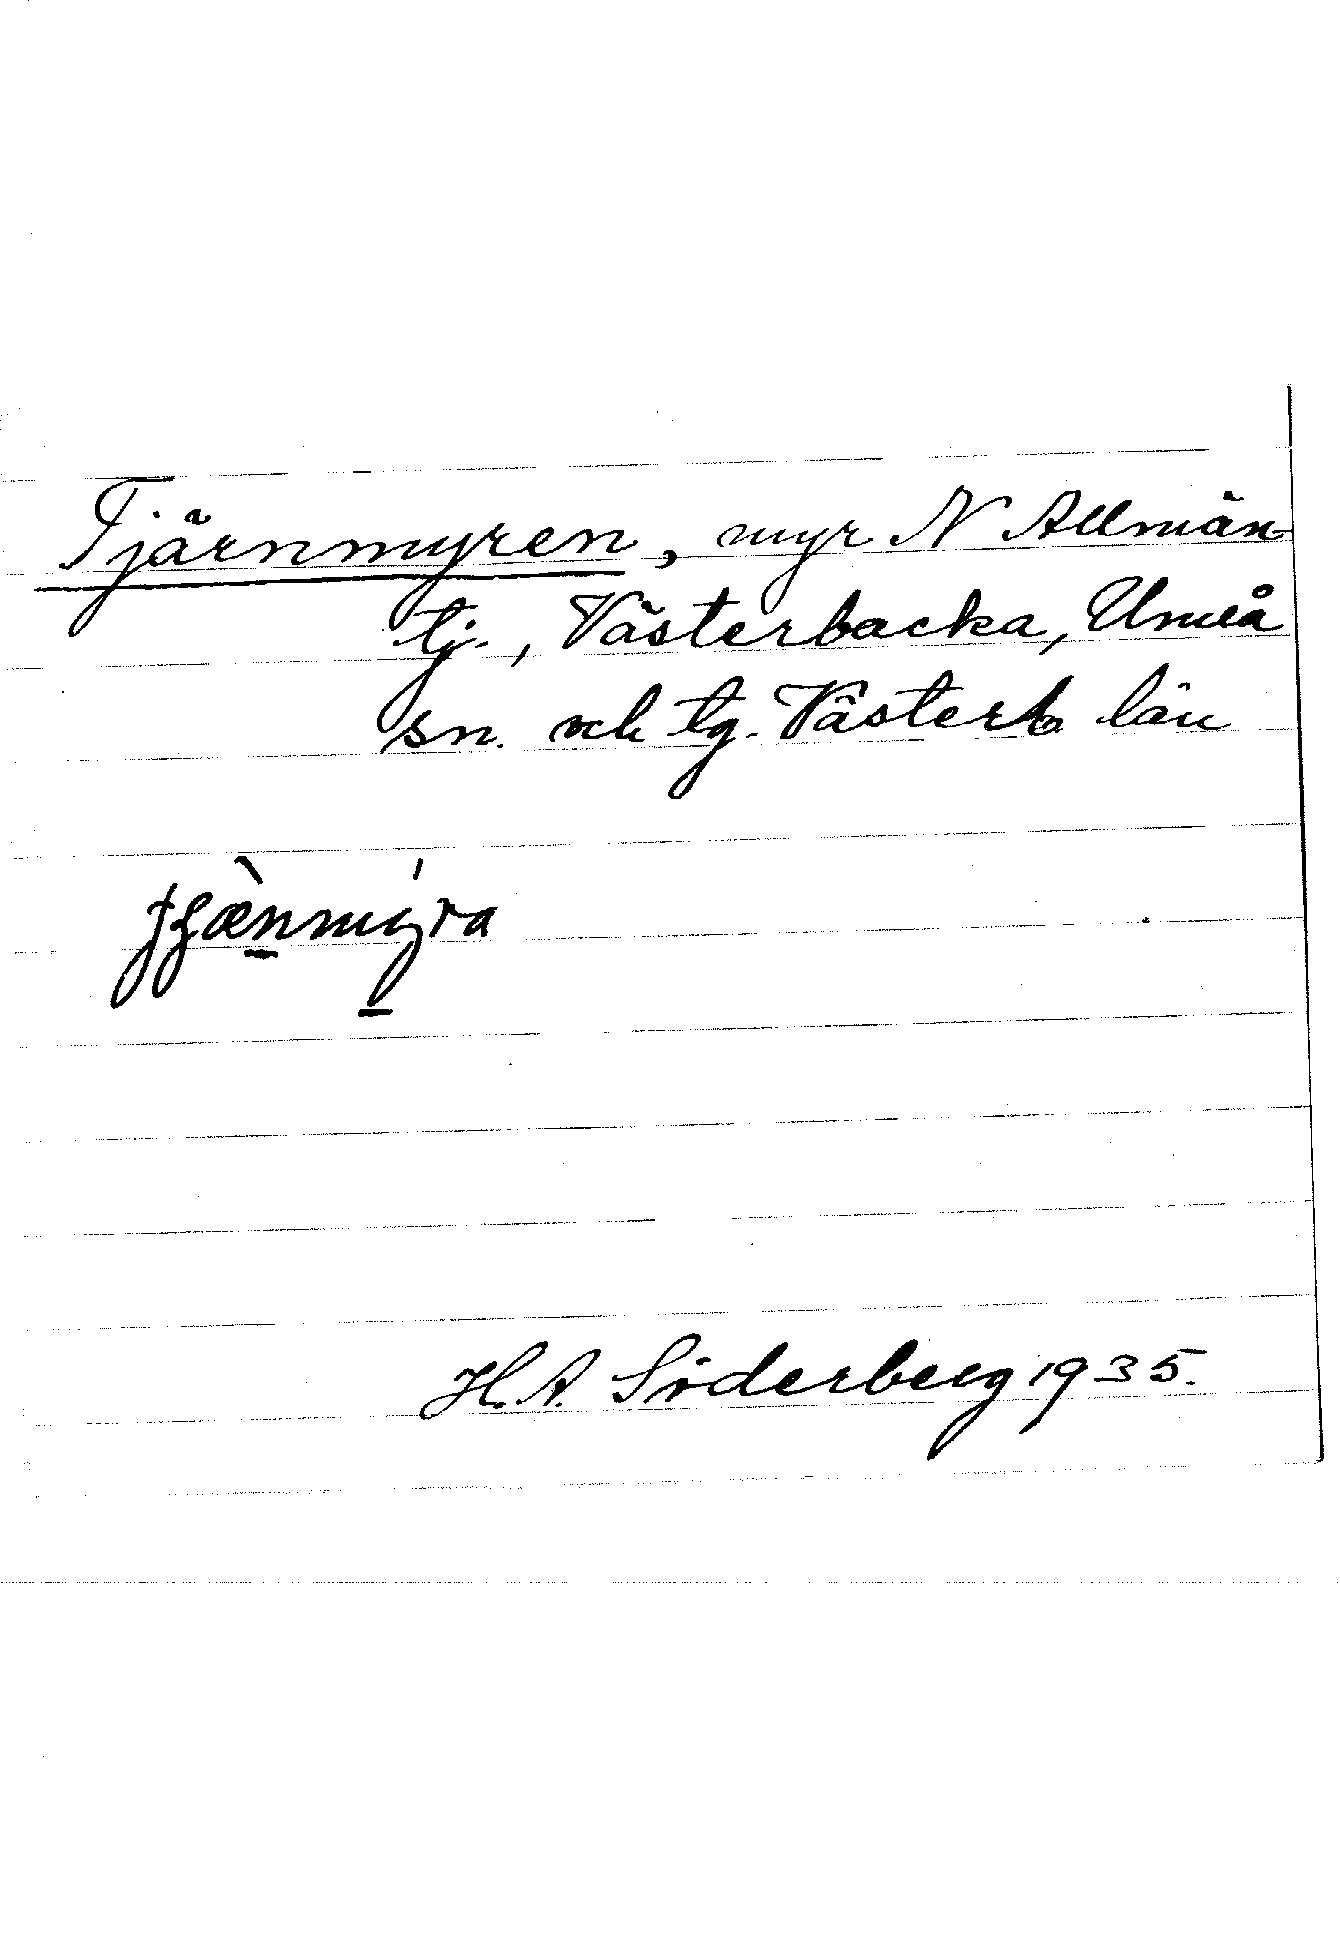 Tjärnmyren, myr N Allmän-
tj., Västerbacka, Umeå
sn. och tg. Västerb. län
H. A. Söderberg 1935.